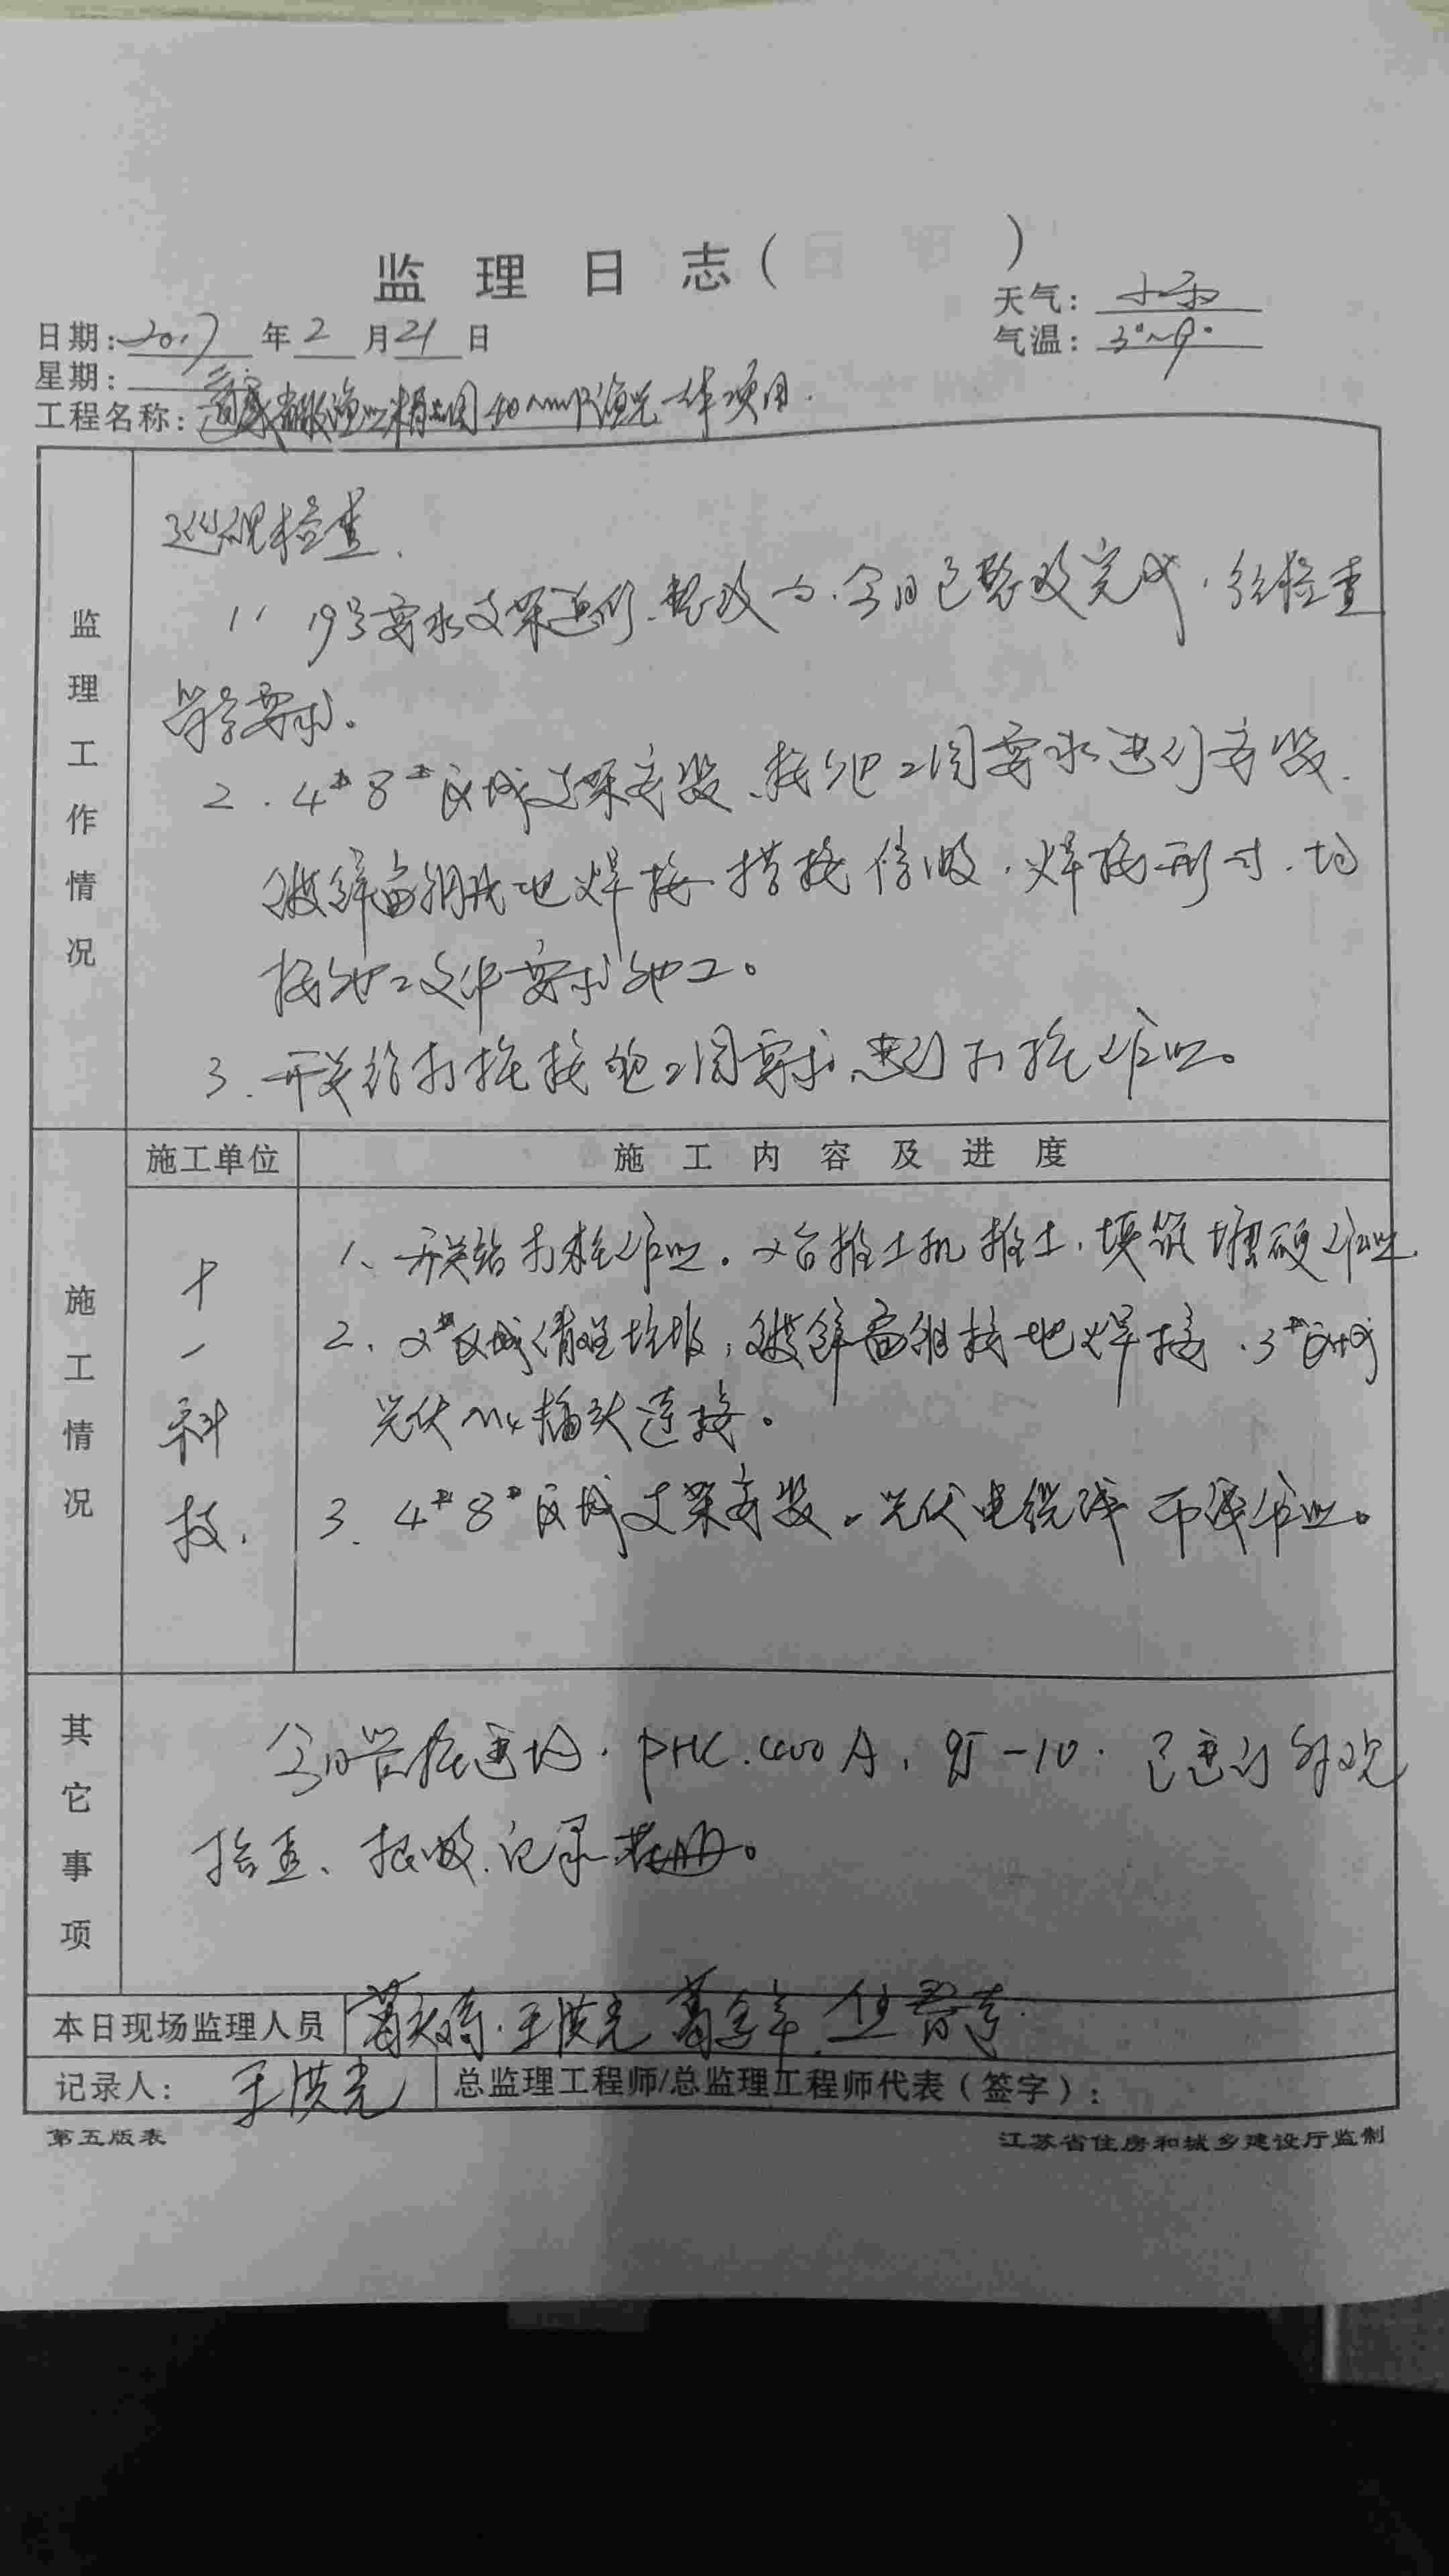 监理日志( )
天气: 小雨
日期: 2017 年 2 月 21 日
气温: 3°~9°
星期: 二
工程名称: 渔业精品园40MWP渔光一体项目.
监理工作情况
巡视检查.
1、19号要求支架进行整改的、今日已整改完成,经检查
符合要求。
2.4#8#区域支架安装、按施工图要求进行安装.
镀锌扁钢接地焊接搭接倍数,焊接形式.均
按施工文件要求施工。
3.开关站打桩按施工图要求,进行打桩作业。
施工单位
施工内容及进度
施工情况
十一科技.
1、开关站打桩作业。2台推土机推土,填筑塘埂作业.
2、2#区域清理垃圾,镀锌扁钢接地焊接.3#区域
光伏MC4插头连接。
3.4#8#区域支架安装。光伏电缆线布线作业。
其它事项
今日管桩进场.PHC.400A,95-10.已进行外观
检查、报验.记录
本日现场监理人员
王洪光
记录人: 王洪光
总监理工程师/总监理工程师代表(签字):
第五版表
江苏省住房和城乡建设厅监制